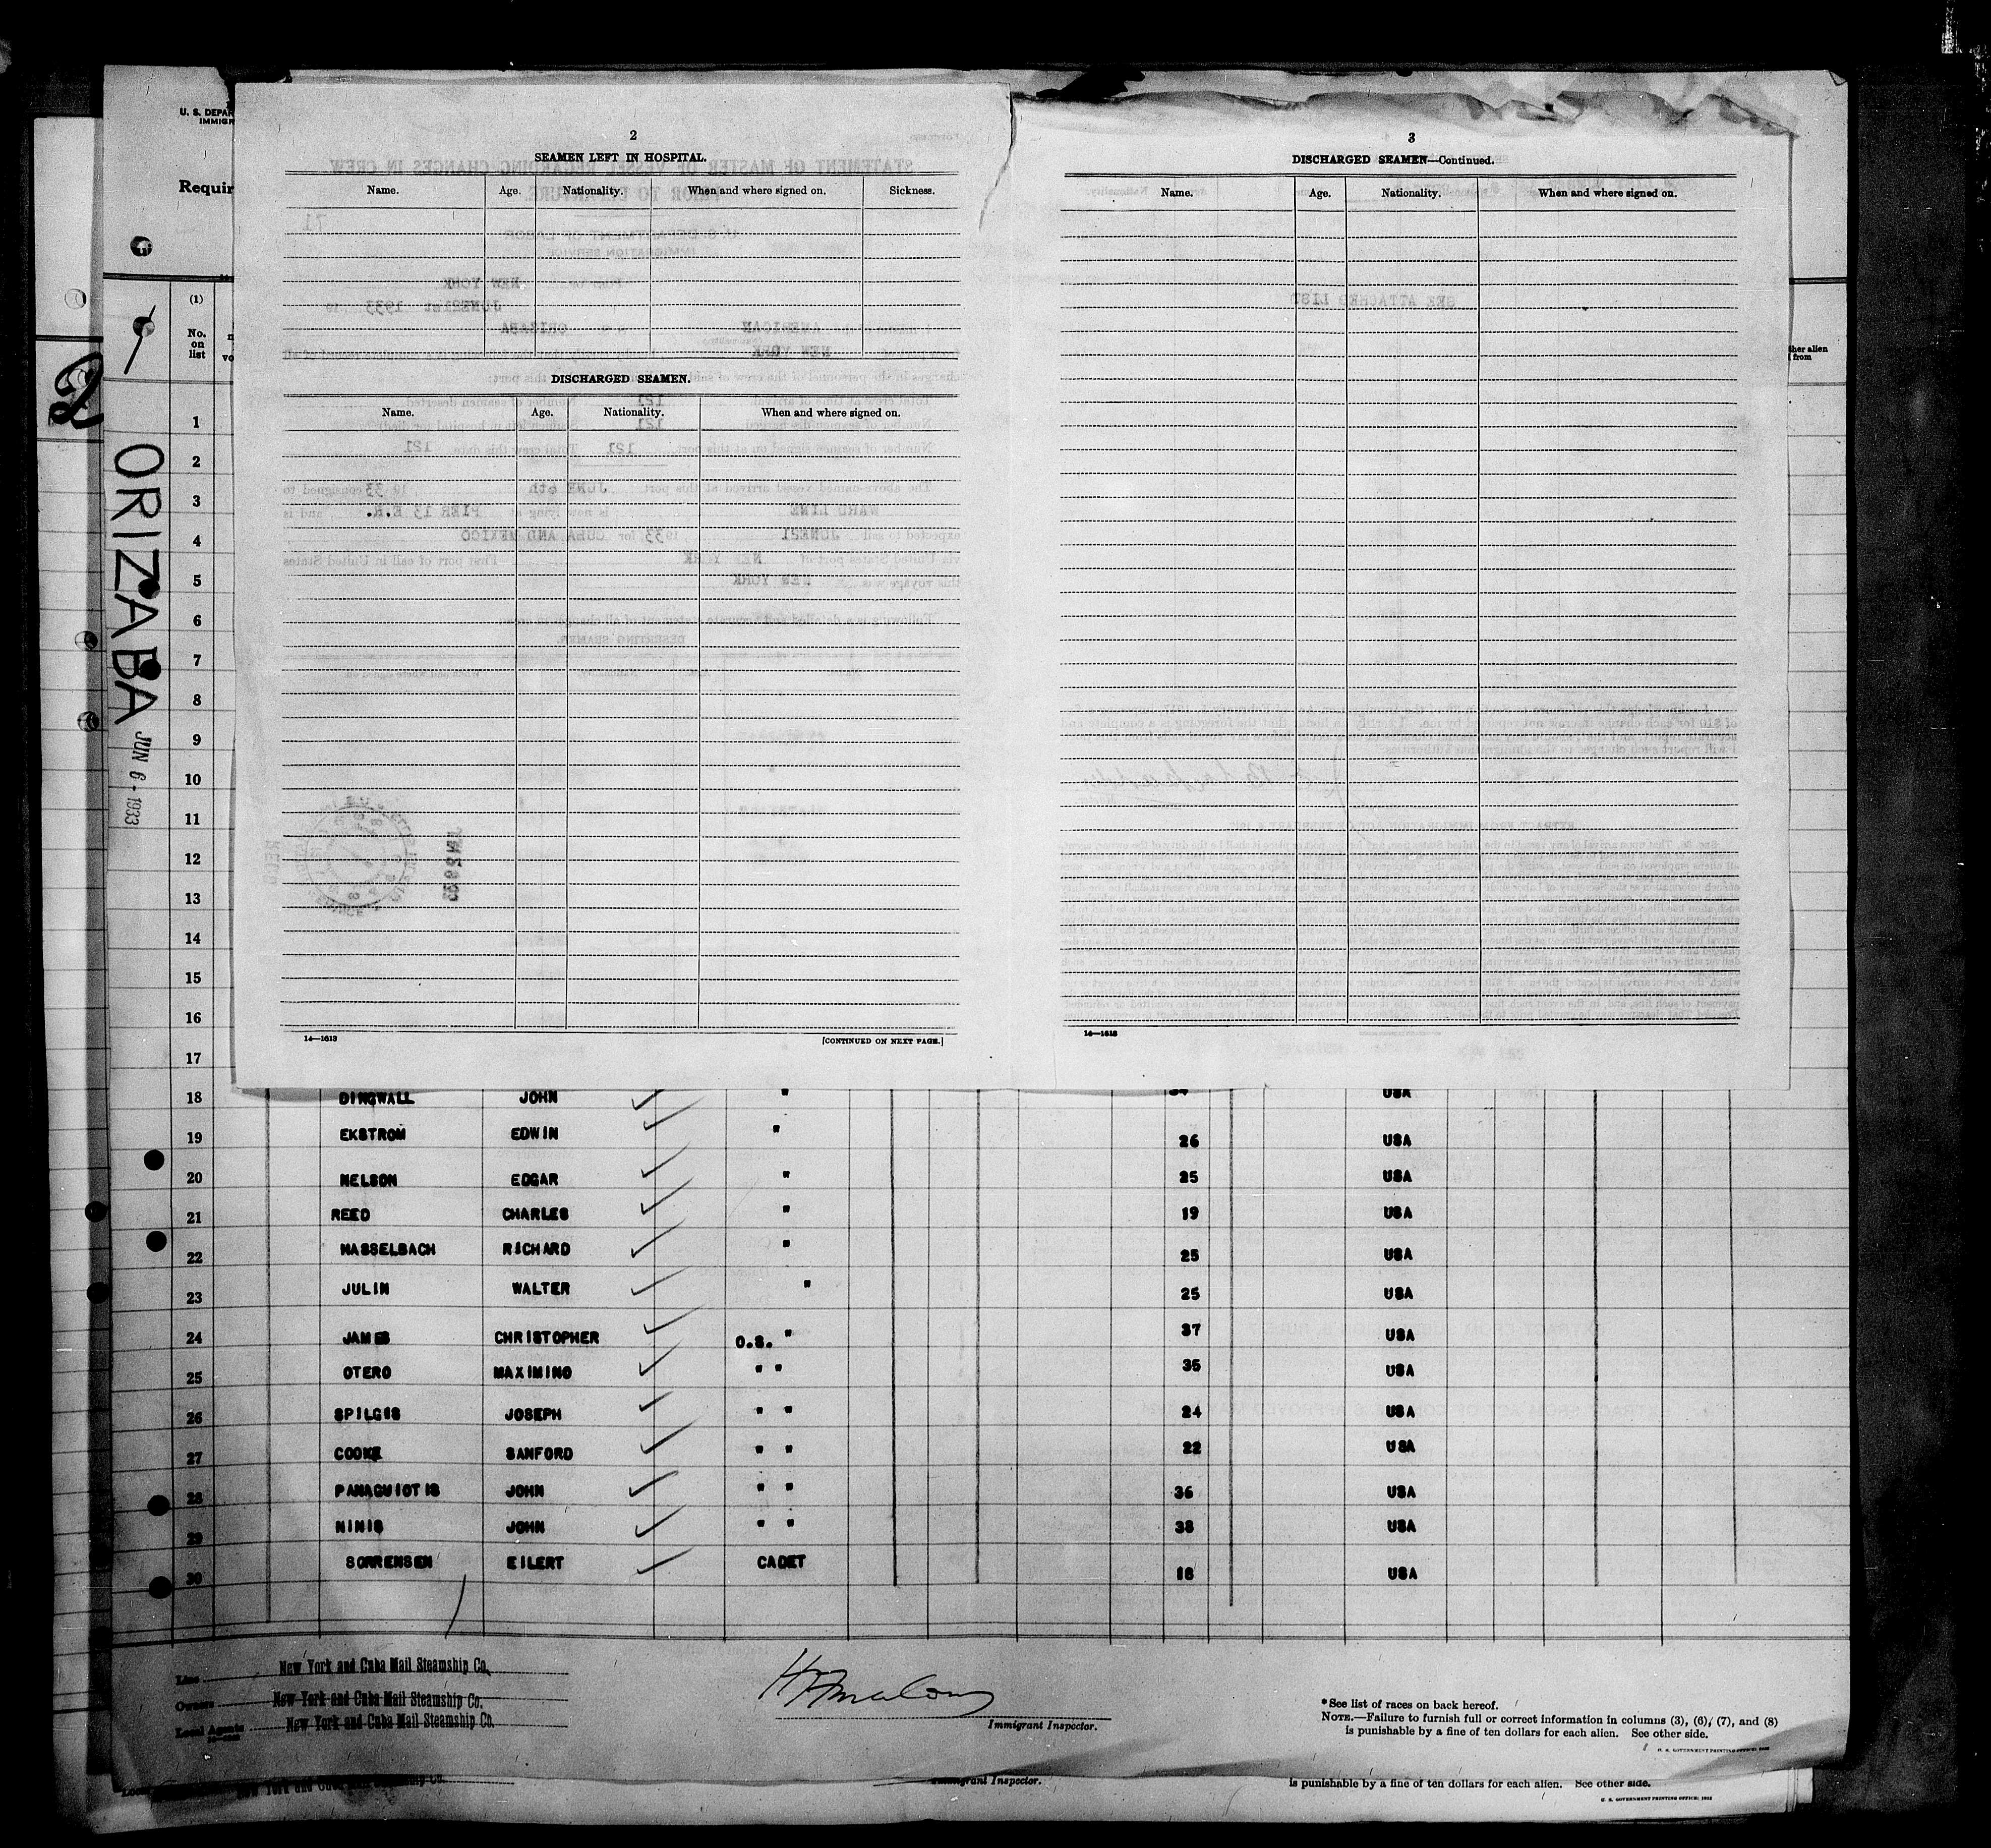 U. S. DEPAR
IMMIGR
Requir
(1)
No.
on
list
2
ORIZABA
JUN 6 - 1933
2
SEAMEN LEFT IN HOSPITAL.
Name. Age. Nationality. When and where signed on. Sickness.
DISCHARGED SEAMEN.
Name. Age. Nationality. When and where signed on.
14—1613 [CONTINUED ON NEXT PAGE.]
3
DISCHARGED SEAMEN—Continued.
Name. Age. Nationality. When and where signed on.
14—1613
ther alien
from
1
2
3
4
5
6
7
8
9
10
11
12
13
14
15
16
17
18 DINGWALL JOHN " USA
19 EKSTROM EDWIN " 26 USA
20 NELSON EDGAR " 25 USA
21 REED CHARLES " 19 USA
22 HASSELBACH RICHARD " 25 USA
23 JULIN WALTER " 25 USA
24 JAMES CHRISTOPHER O.S. " 37 USA
25 OTERO MAXIMINO " " 35 USA
26 SPILGIS JOSEPH " " 24 USA
27 COOKE SANFORD " " 22 USA
28 PANAGUIOTIS JOHN " " 36 USA
29 NINIS JOHN " " 38 USA
30 SORRENSEN EILERT CADET 18 USA
Line New York and Cuba Mail Steamship Co.
Owners New York and Cuba Mail Steamship Co.
Local Agents New York and Cuba Mail Steamship Co.
Immigrant Inspector.
*See list of races on back hereof.
NOTE.—Failure to furnish full or correct information in columns (3), (6), (7), and (8)
is punishable by a fine of ten dollars for each alien. See other side.
U. S. GOVERNMENT PRINTING OFFICE
New York and Cuba Mail Steamship Co.
Immigrant Inspector.
is punishable by a fine of ten dollars for each alien. See other side.
U. S. GOVERNMENT PRINTING OFFICE